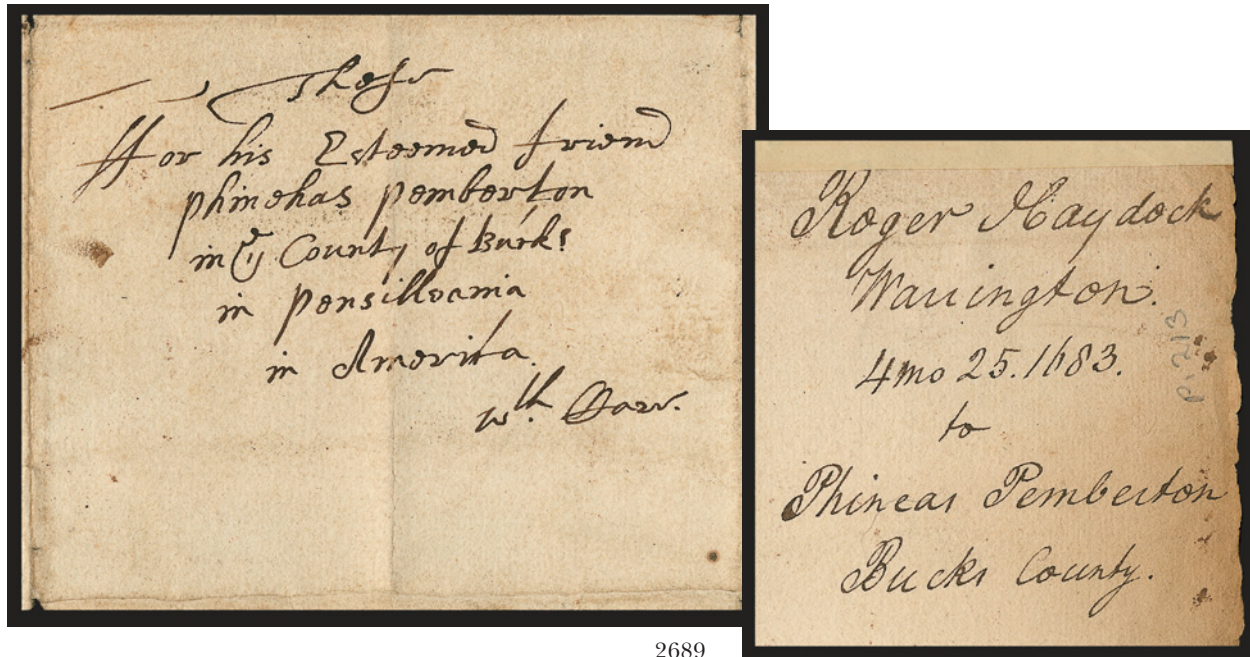 These
ffor his Esteemed friend
phinehas pemberton
in ye County of Bucks
in pensillvania
in America
wth Care.
Roger Haydock
Warrington.
4mo 25.1683.
to
Phineas Pemberton
Bucks County.
p. 213
2689